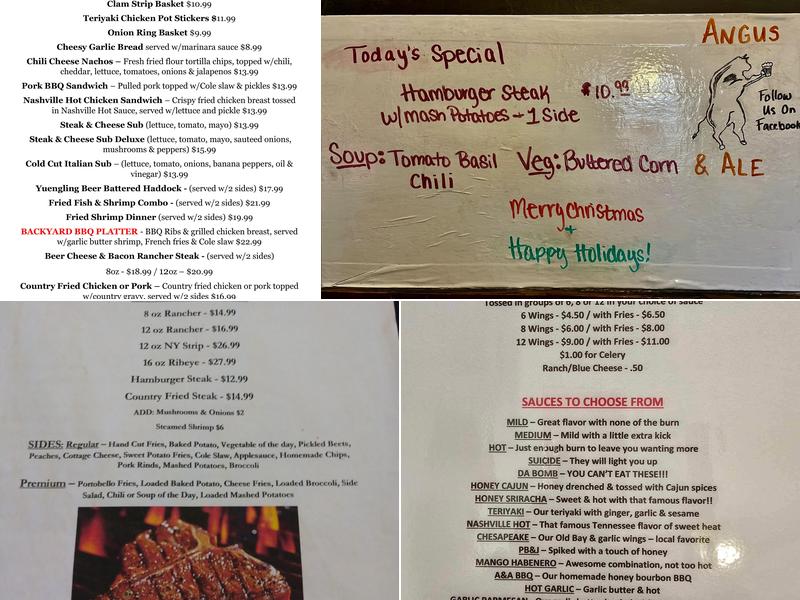 Clam Strip Basket $10.99
Teriyaki Chicken Pot Stickers $11.99
Onion Ring Basket $9.99
Cheesy Garlic Bread served w/marinara sauce $8.99
Chili Cheese Nachos – Fresh fried flour tortilla chips, topped w/chili,
cheddar, lettuce, tomatoes, onions & jalapenos $13.99
Pork BBQ Sandwich – Pulled pork topped w/Cole slaw & pickles $13.99
Nashville Hot Chicken Sandwich – Crispy fried chicken breast tossed
in Nashville Hot Sauce, served w/lettuce and pickle $13.99
Steak & Cheese Sub (lettuce, tomato, mayo) $13.99
Steak & Cheese Sub Deluxe (lettuce, tomato, mayo, sauteed onions,
mushrooms & peppers) $15.99
Cold Cut Italian Sub – (lettuce, tomato, onions, banana peppers, oil &
vinegar) $13.99
Yuengling Beer Battered Haddock - (served w/2 sides) $17.99
Fried Fish & Shrimp Combo - (served w/2 sides) $21.99
Fried Shrimp Dinner (served w/2 sides) $19.99
BACKYARD BBQ PLATTER - BBQ Ribs & grilled chicken breast, served
w/garlic butter shrimp, French fries & Cole slaw $22.99
Beer Cheese & Bacon Rancher Steak - (served w/2 sides)
8oz - $18.99 / 12oz – $20.99
Country Fried Chicken or Pork – Country fried chicken or pork topped
w/country gravy, served w/2 sides $16.99
ANGUS
Today's Special
Hamburger Steak $10.99
w/mash Potatoes + 1 Side
Follow
Us On
Facebook
Soup: Tomato Basil
Chili
Veg: Buttered Corn
& ALE
Merry Christmas
+
Happy Holidays!
8 oz Rancher - $14.99
12 oz Rancher - $16.99
12 oz NY Strip - $26.99
16 oz Ribeye - $27.99
Hamburger Steak - $12.99
Country Fried Steak - $14.99
ADD: Mushrooms & Onions $2
Steamed Shrimp $6
SIDES: Regular – Hand Cut Fries, Baked Potato, Vegetable of the day, Pickled Beets,
Peaches, Cottage Cheese, Sweet Potato Fries, Cole Slaw, Applesauce, Homemade Chips,
Pork Rinds, Mashed Potatoes, Broccoli
Premium – Portobello Fries, Loaded Baked Potato, Cheese Fries, Loaded Broccoli, Side
Salad, Chili or Soup of the Day, Loaded Mashed Potatoes
Tossed in groups of 6, 8 or 12 in your choice of sauce
6 Wings - $4.50 / with Fries - $6.50
8 Wings - $6.00 / with Fries - $8.00
12 Wings - $9.00 / with Fries - $11.00
$1.00 for Celery
Ranch/Blue Cheese - .50
SAUCES TO CHOOSE FROM
MILD – Great flavor with none of the burn
MEDIUM – Mild with a little extra kick
HOT – Just enough burn to leave you wanting more
SUICIDE – They will light you up
DA BOMB – YOU CAN'T EAT THESE!!!
HONEY CAJUN – Honey drenched & tossed with Cajun spices
HONEY SRIRACHA – Sweet & hot with that famous flavor!!
TERIYAKI – Our teriyaki with ginger, garlic & sesame
NASHVILLE HOT – That famous Tennessee flavor of sweet heat
CHESAPEAKE – Our Old Bay & garlic wings – local favorite
PB&J – Spiked with a touch of honey
MANGO HABENERO – Awesome combination, not too hot
A&A BBQ – Our homemade honey bourbon BBQ
HOT GARLIC – Garlic butter & hot
GARLIC PARMESAN